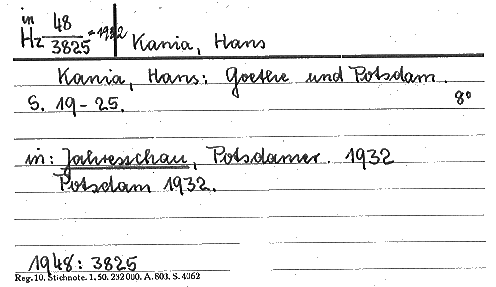 in
Hz 48/3825 = 1932 Kania, Hans
Kania, Hans: Goethe und Potsdam.
S. 19-25. 8°
in: Jahresschau, Potsdamer. 1932
Potsdam 1932.
1948: 3825
Reg. 10. Stichnote. 1. 50. 232000. A. 803. S. 4062